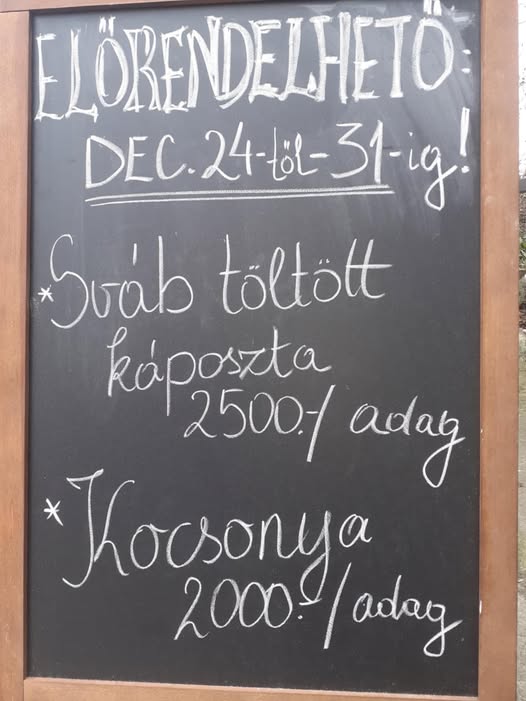 ELŐRENDELHETŐ:
DEC. 24-től-31-ig!
* Sváb töltött
káposzta
2500.-/adag
* Kocsonya
2000.-/adag